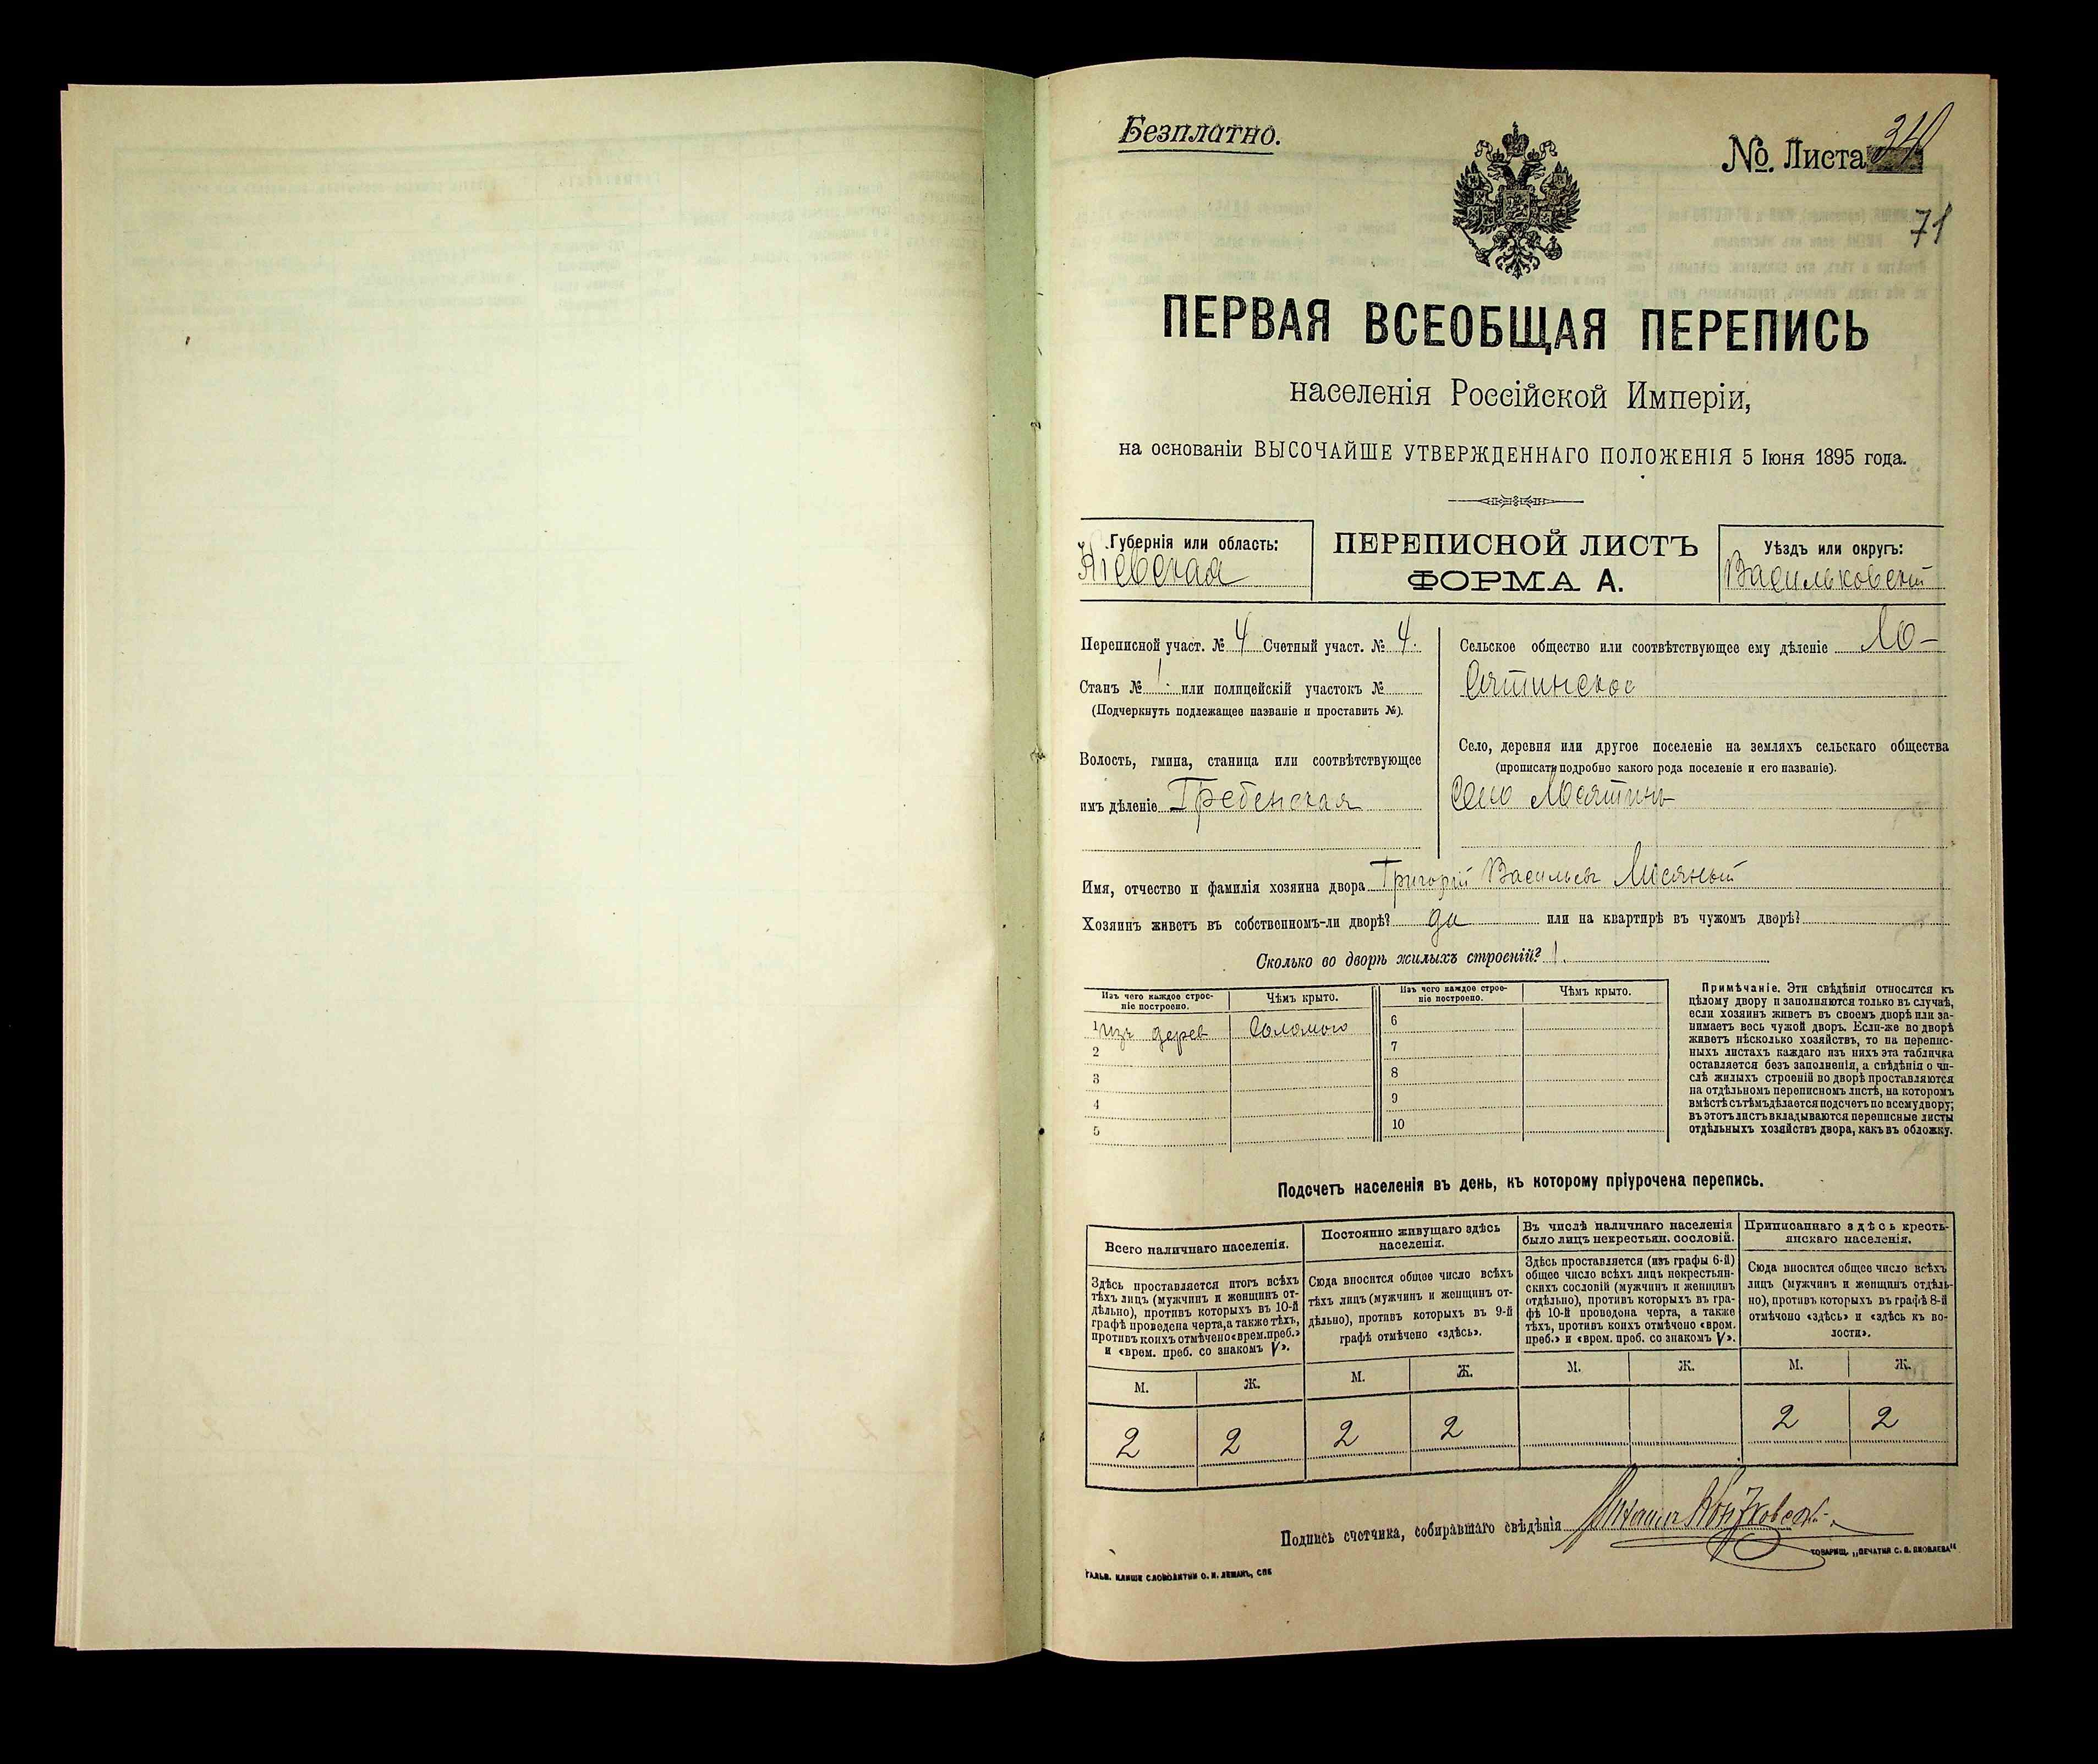 Безплатно.
№ Листа
71
ПЕРВАЯ ВСЕОБЩАЯ ПЕРЕПИСЬ
населенія Россійской Имперіи,
на основаніи ВЫСОЧАЙШЕ УТВЕРЖДЕННАГО ПОЛОЖЕНІЯ 5 Іюня 1895 года.
Губернія или область:
Кіевская
ПЕРЕПИСНОЙ ЛИСТЪ
ФОРМА А.
Уѣздъ или округъ:
Васильковскій
Переписной участ. № 4 Счетный участ. № 4.
Станъ № 1. или полицейскій участокъ №
(Подчеркнуть подлежащее названіе и проставить №).
Волость, гмина, станица или соотвѣтствующее
имъ дѣленіе Гребенская
Сельское общество или соотвѣтствующее ему дѣленіе Ло-
сятинское
Село, деревня или другое поселеніе на земляхъ сельскаго общества
(прописать подробно какого рода поселеніе и его названіе).
Село Лосятинъ
Имя, отчество и фамилія хозяина двора Григорій Васильевъ
Хозяинъ живетъ въ собственномъ-ли дворѣ? да или на квартирѣ въ чужомъ дворѣ?
Сколько во дворѣ жилыхъ строеній? 1.
Изъ чего каждое строе-
ніе построено.
Чѣмъ крыто.
1 изъ дерев Соломою
2
3
4
5
Изъ чего каждое строе-
ніе построено.
Чѣмъ крыто.
6
7
8
9
10
Примѣчаніе. Эти свѣдѣнія относятся къ
цѣлому двору и заполняются только въ случаѣ,
если хозяинъ живетъ въ своемъ дворѣ или за-
нимаетъ весь чужой дворъ. Если-же во дворѣ
живетъ нѣсколько хозяйствъ, то на перепис-
ныхъ листахъ каждаго изъ нихъ эта табличка
оставляется безъ заполненія, а свѣдѣнія о чи-
слѣ жилыхъ строеній во дворѣ проставляются
на отдѣльномъ переписномъ листѣ, на которомъ
вмѣстѣ съ тѣмъ дѣлается подсчетъ по всему двору;
въ этотъ листъ вкладываются переписные листы
отдѣльныхъ хозяйствъ двора, какъ въ обложку.
Подсчетъ населенія въ день, къ которому пріурочена перепись.
Всего наличнаго населенія.
Здѣсь проставляется итогъ всѣхъ
тѣхъ лицъ (мужчинъ и женщинъ от-
дѣльно), противъ которыхъ въ 10-й
графѣ проведена черта, а также тѣхъ,
противъ коихъ отмѣчено «врем. преб.»
и «врем. преб. со знакомъ V».
М. Ж.
2 2
Постоянно живущаго здѣсь
населенія.
Сюда вносится общее число всѣхъ
тѣхъ лицъ (мужчинъ и женщинъ от-
дѣльно), противъ которыхъ въ 9-й
графѣ отмѣчено «здѣсь».
М. Ж.
2 2
Въ числѣ наличнаго населенія
было лицъ некрестьян. сословій.
Здѣсь проставляется (изъ графы 6-й)
общее число всѣхъ лицъ некрестьян-
скихъ сословій (мужчинъ и женщинъ
отдѣльно), противъ которыхъ въ гра-
фѣ 10-й проведена черта, а также
тѣхъ, противъ коихъ отмѣчено «врем.
преб.» и «врем. преб. со знакомъ V».
М. Ж.
Приписаннаго здѣсь кресть-
янскаго населенія.
Сюда вносится общее число всѣхъ
лицъ (мужчинъ и женщинъ отдѣль-
но), противъ которыхъ въ графѣ 8-й
отмѣчено «здѣсь» и «здѣсь къ во-
лости».
М. Ж.
2 2
Подпись счетчика, собиравшаго свѣдѣнія
ГАЛЬВ. КЛИШЕ СЛОВОЛИТНИ О. И. ЛЕМАНЪ, СПБ
ТОВАРИЩ. „ПЕЧАТНЯ С. П. ЯКОВЛЕВА"